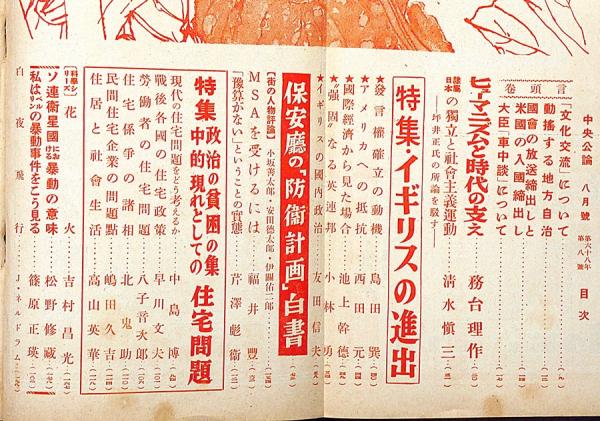 中央公論 八月號 第六十八年 第八號 目次
卷頭言
「文化交流」について
動搖する地方自治
國會の放送締出しと
米國の入國締出し
大臣「車中談」について
ヒューマニズムと時代の支え 務台理作
隸屬日本の獨立と社會主義運動 清水愼三
――坪井正氏の所論を駁す――
特集・イギリスの進出
★發言權確立の動機 島田巽
★アメリカへの抵抗 西田元
★國際經濟から見た場合 池上幹德
★“强固”なる英連邦 小林勇
★イギリスの國内政治 友田信夫
保安廳の「防衞計画」白書
【街の人物評論】 小坂善太郎・安田德太郎・伊關佑二郎
MSAを受けるには 福井豐
「豫算がない」ということの實態 芹澤彪衞
特集 政治の貧困の集中的現れとしての 住宅問題
現代の住宅問題をどう考えるか 中島博
戰後各國の住宅政策 早川文夫
勞働者の住宅問題 八子音次郎
住宅係爭の諸相 北鬼助
民間住宅企業の問題點 嶋田久吉
住居と社會生活 高山英華
【科學シリーズ】 花火 吉村昌光
ソ連衞星國における暴動の意味 松野修藏
私はベルリンの暴動事件をこう見る 篠原正瑛
白夜飛行 J・ネルドラム